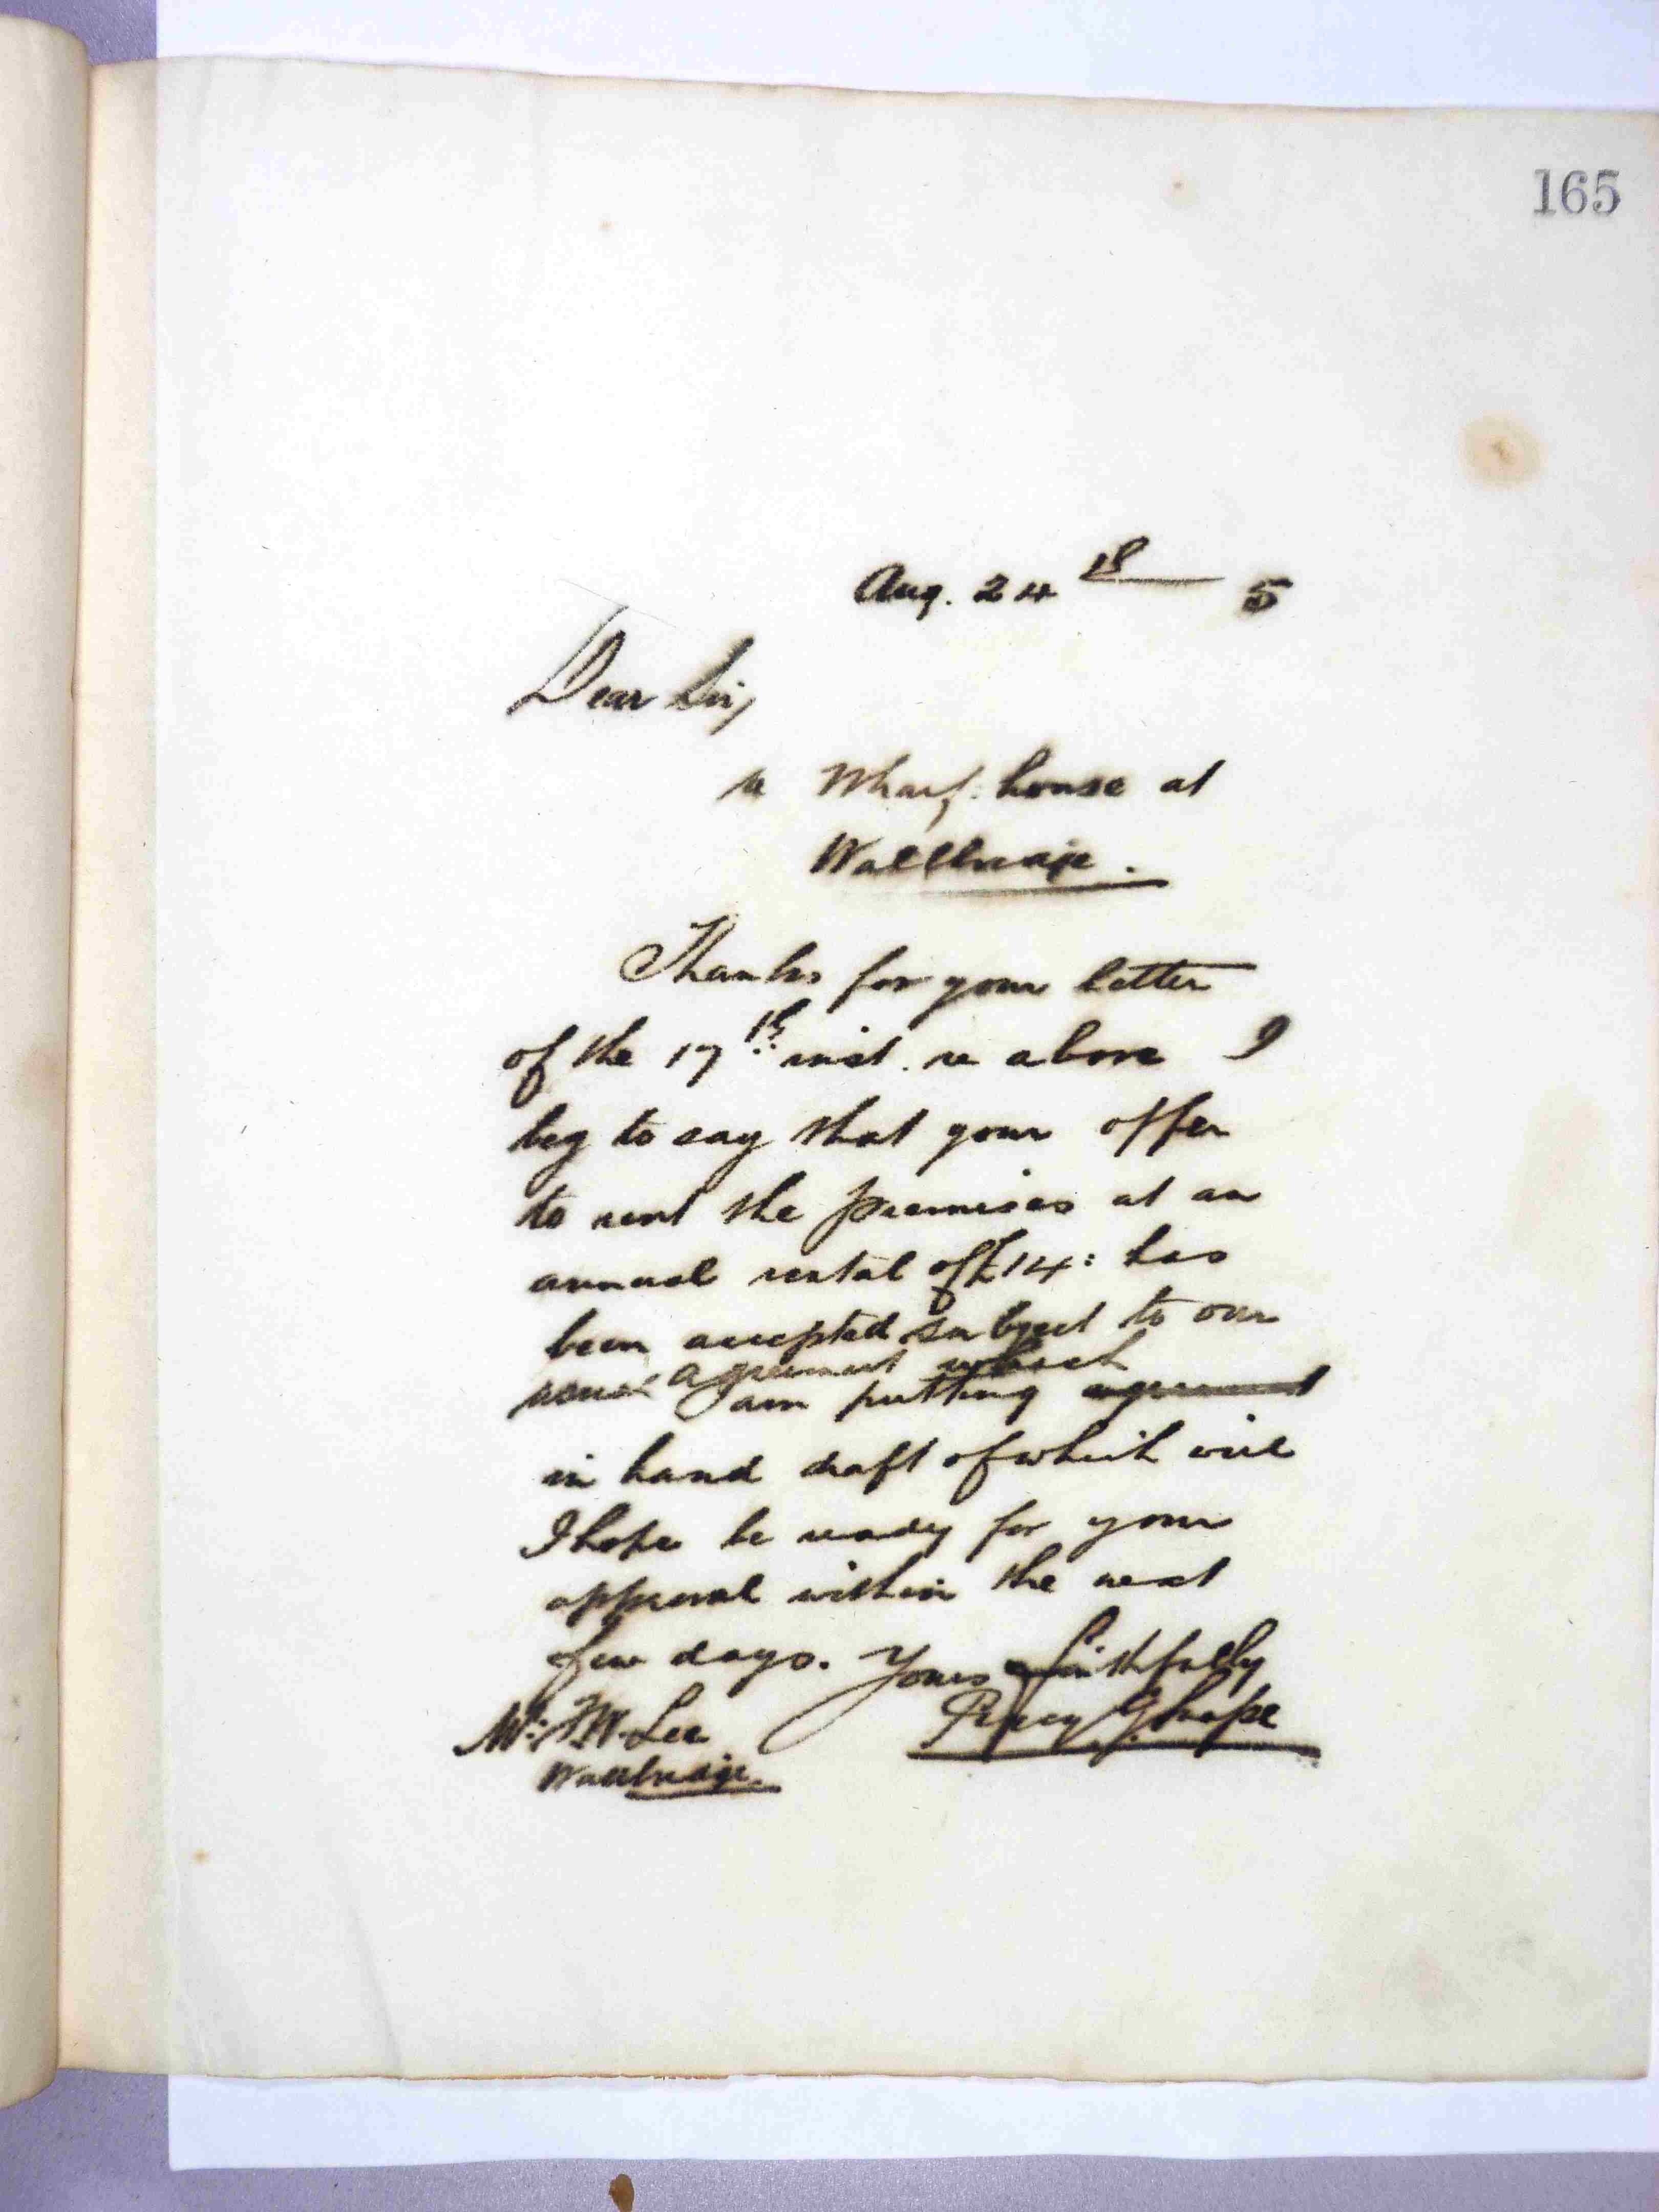 165
Aug. 24th 5
Dear Sir,
re Wharf house at
Wallbridge.
Thanks for your letter
of the 17th: inst. re above I
beg to say that your offer
to rent the premises at an
annual rental of £14: has
been accepted subject to our
usual agreement which
I am putting agreement
in hand draft of which will
I hope be ready for your
approval within the next
few days. Yours faithfully
Mr: F.W. Lee
Percy G Snape
Wallbridge.